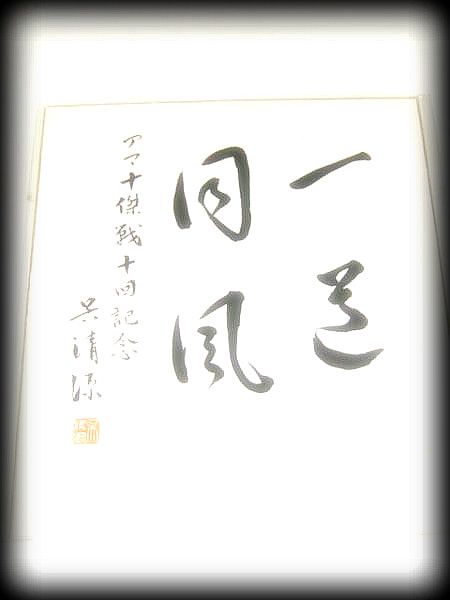 一道
同風
アマ十傑戦十回記念
呉清源